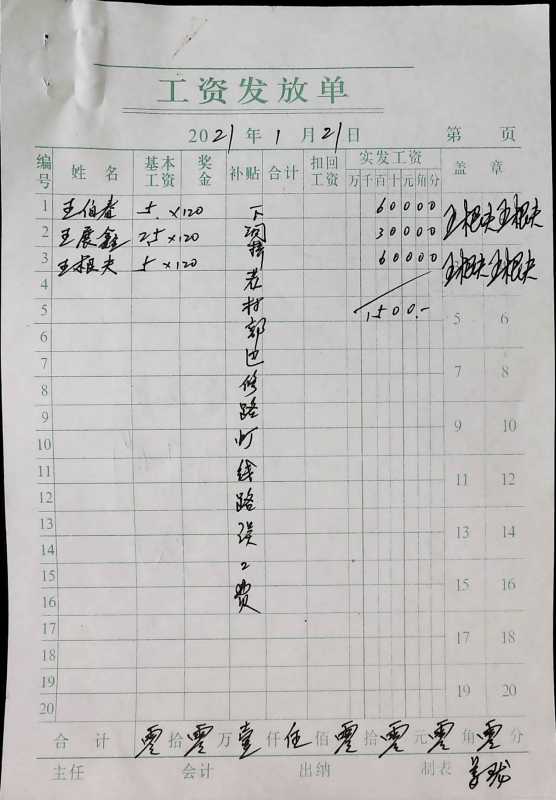 工资发放单
2021年1月21日 第 页
编号 姓名 基本工资 奖金 补贴 合计 扣回工资 实发工资 万千百十元角分 盖章
1 王伯春 5 ×120 60000
2 王展鑫 2.5 ×120 30000 王根夫 王根夫
3 王根夫 5 ×120 60000 王根夫 王根夫
4
5 1500.- 5 6
6
7 7 8
8
9 9 10
10
11 11 12
12
13 13 14
14
15 15 16
16
17 17 18
18
19 19 20
20
老村部边修路灯线路误工费
合计 零拾零万壹仟伍佰零拾零元零角零分
主任 会计 出纳 制表